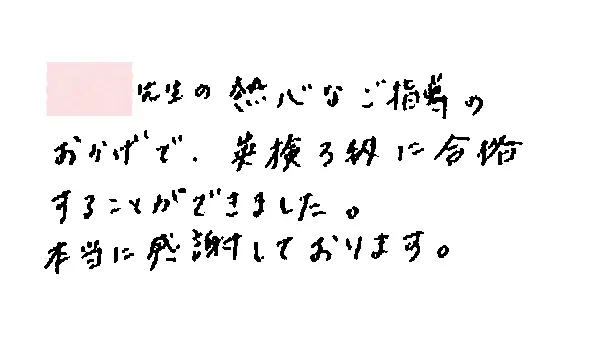 先生の熱心なご指導の
おかげで、英検3級に合格
することができました。
本当に感謝しております。